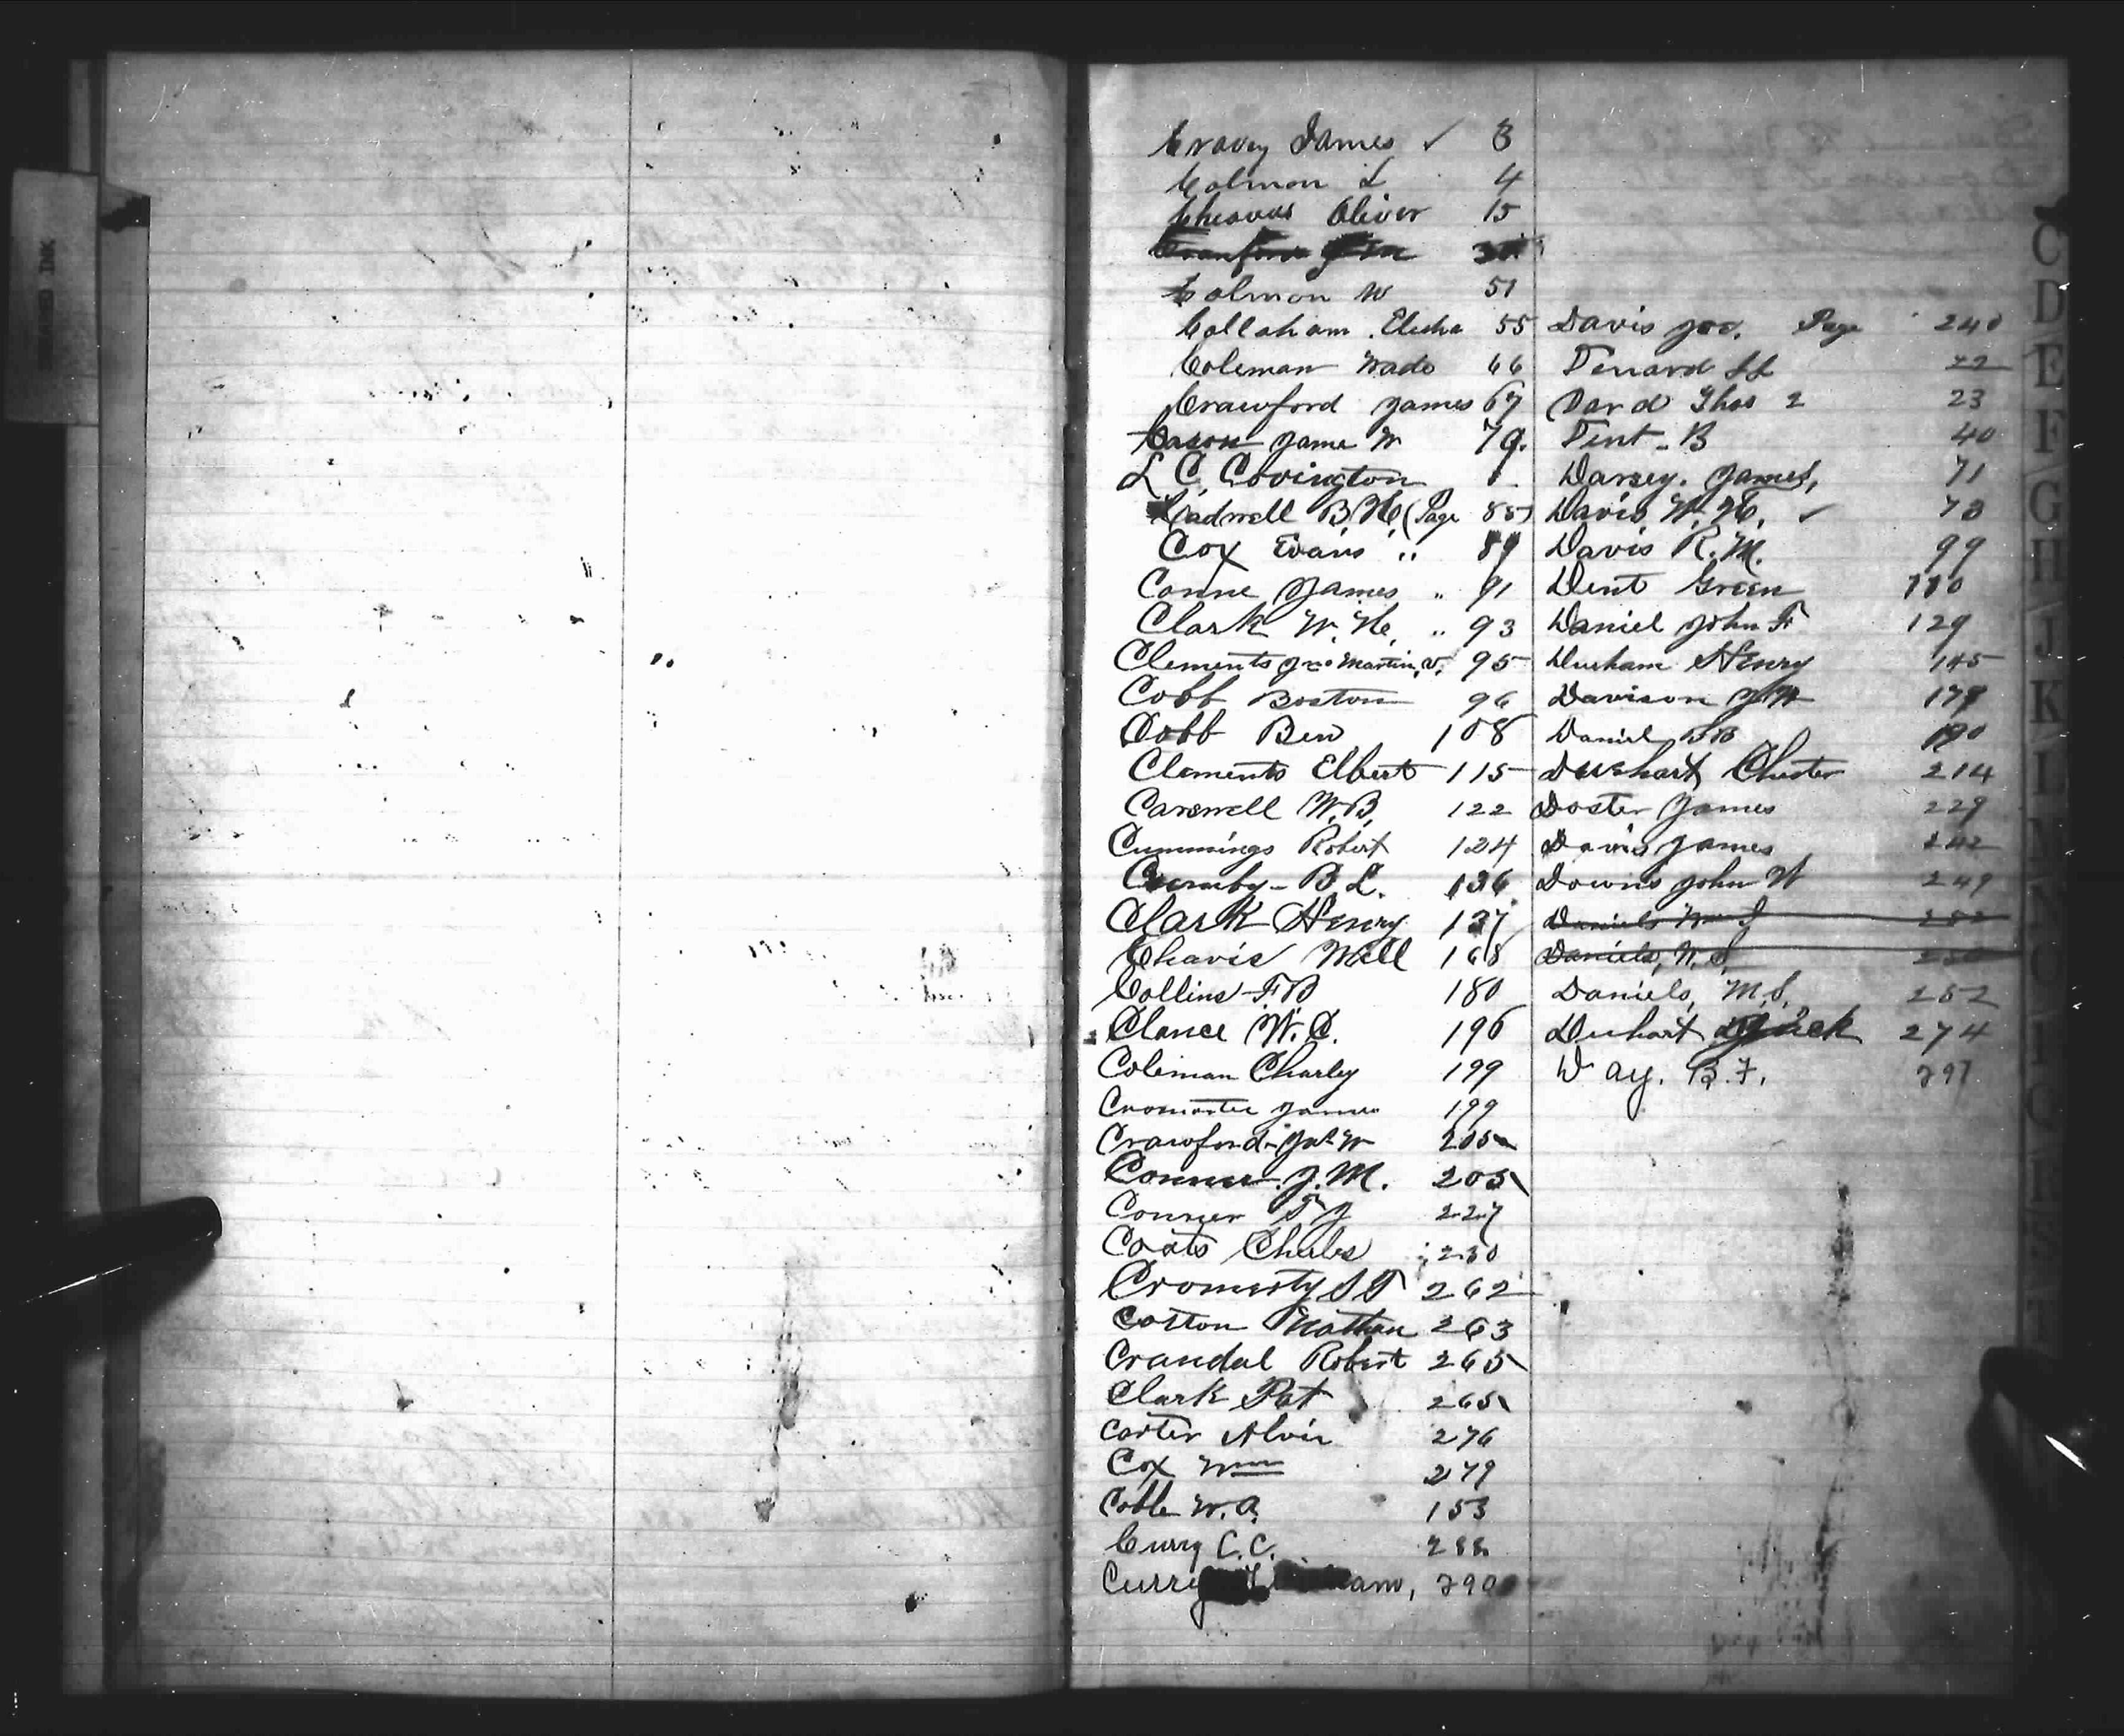 Cravey James ✓ 8
Colmon L 4
Cheavus Oliver 15
Colmon W 51
Callaham Elisha 55
Coleman Wade 66
Crawford James 67
Cason Jame W 79.
L C Covington 1
Cadwell B.H. (Page 85)
Cox Evans " 89
Conne James " 91
Clark W. H. " 93
Clements Jno Martin, v. 95
Cobb Boston 96
Cobb Ben 108
Clements Elbert 115
Carswell W.B. 122
Cummings Robert 124
B L. 136
Clark Henry 137
Chavis Will 168
Collins F B 180
Clance W. C. 196
Coleman Charley 199
James 199
Crawford Jas W 205
Conner J. M. 205
Conner T J 227
Coats Charles 230
Cromerty S T 262
Cotton Nathan 263
Crandal Robert 265
Clark Pat 265
Carter Alvin 276
Cox Wm 279
Cobb W. A. 153
Curry C. C. 288
Curry 290
Davis Joe. Page 240
Denard
Dard Thos 2 23
Dent - B 40
Darsey. James, 71
Davis W. H. ✓ 73
Davis R. M. 99
Dent Green 110
Daniel John F 129
Durham Henry 145
Davison J W 178
Daniel 190
Duehart Chester 214
Doster James 229
Davis James 242
Downs John W 249
Daniels Wm J 252
Daniels, W. S. 250
Daniels, M. S. 252
Duhart Jack 274
Day. B. F. 297
C
D
E
F
G
H
J
K
L
M
N
O